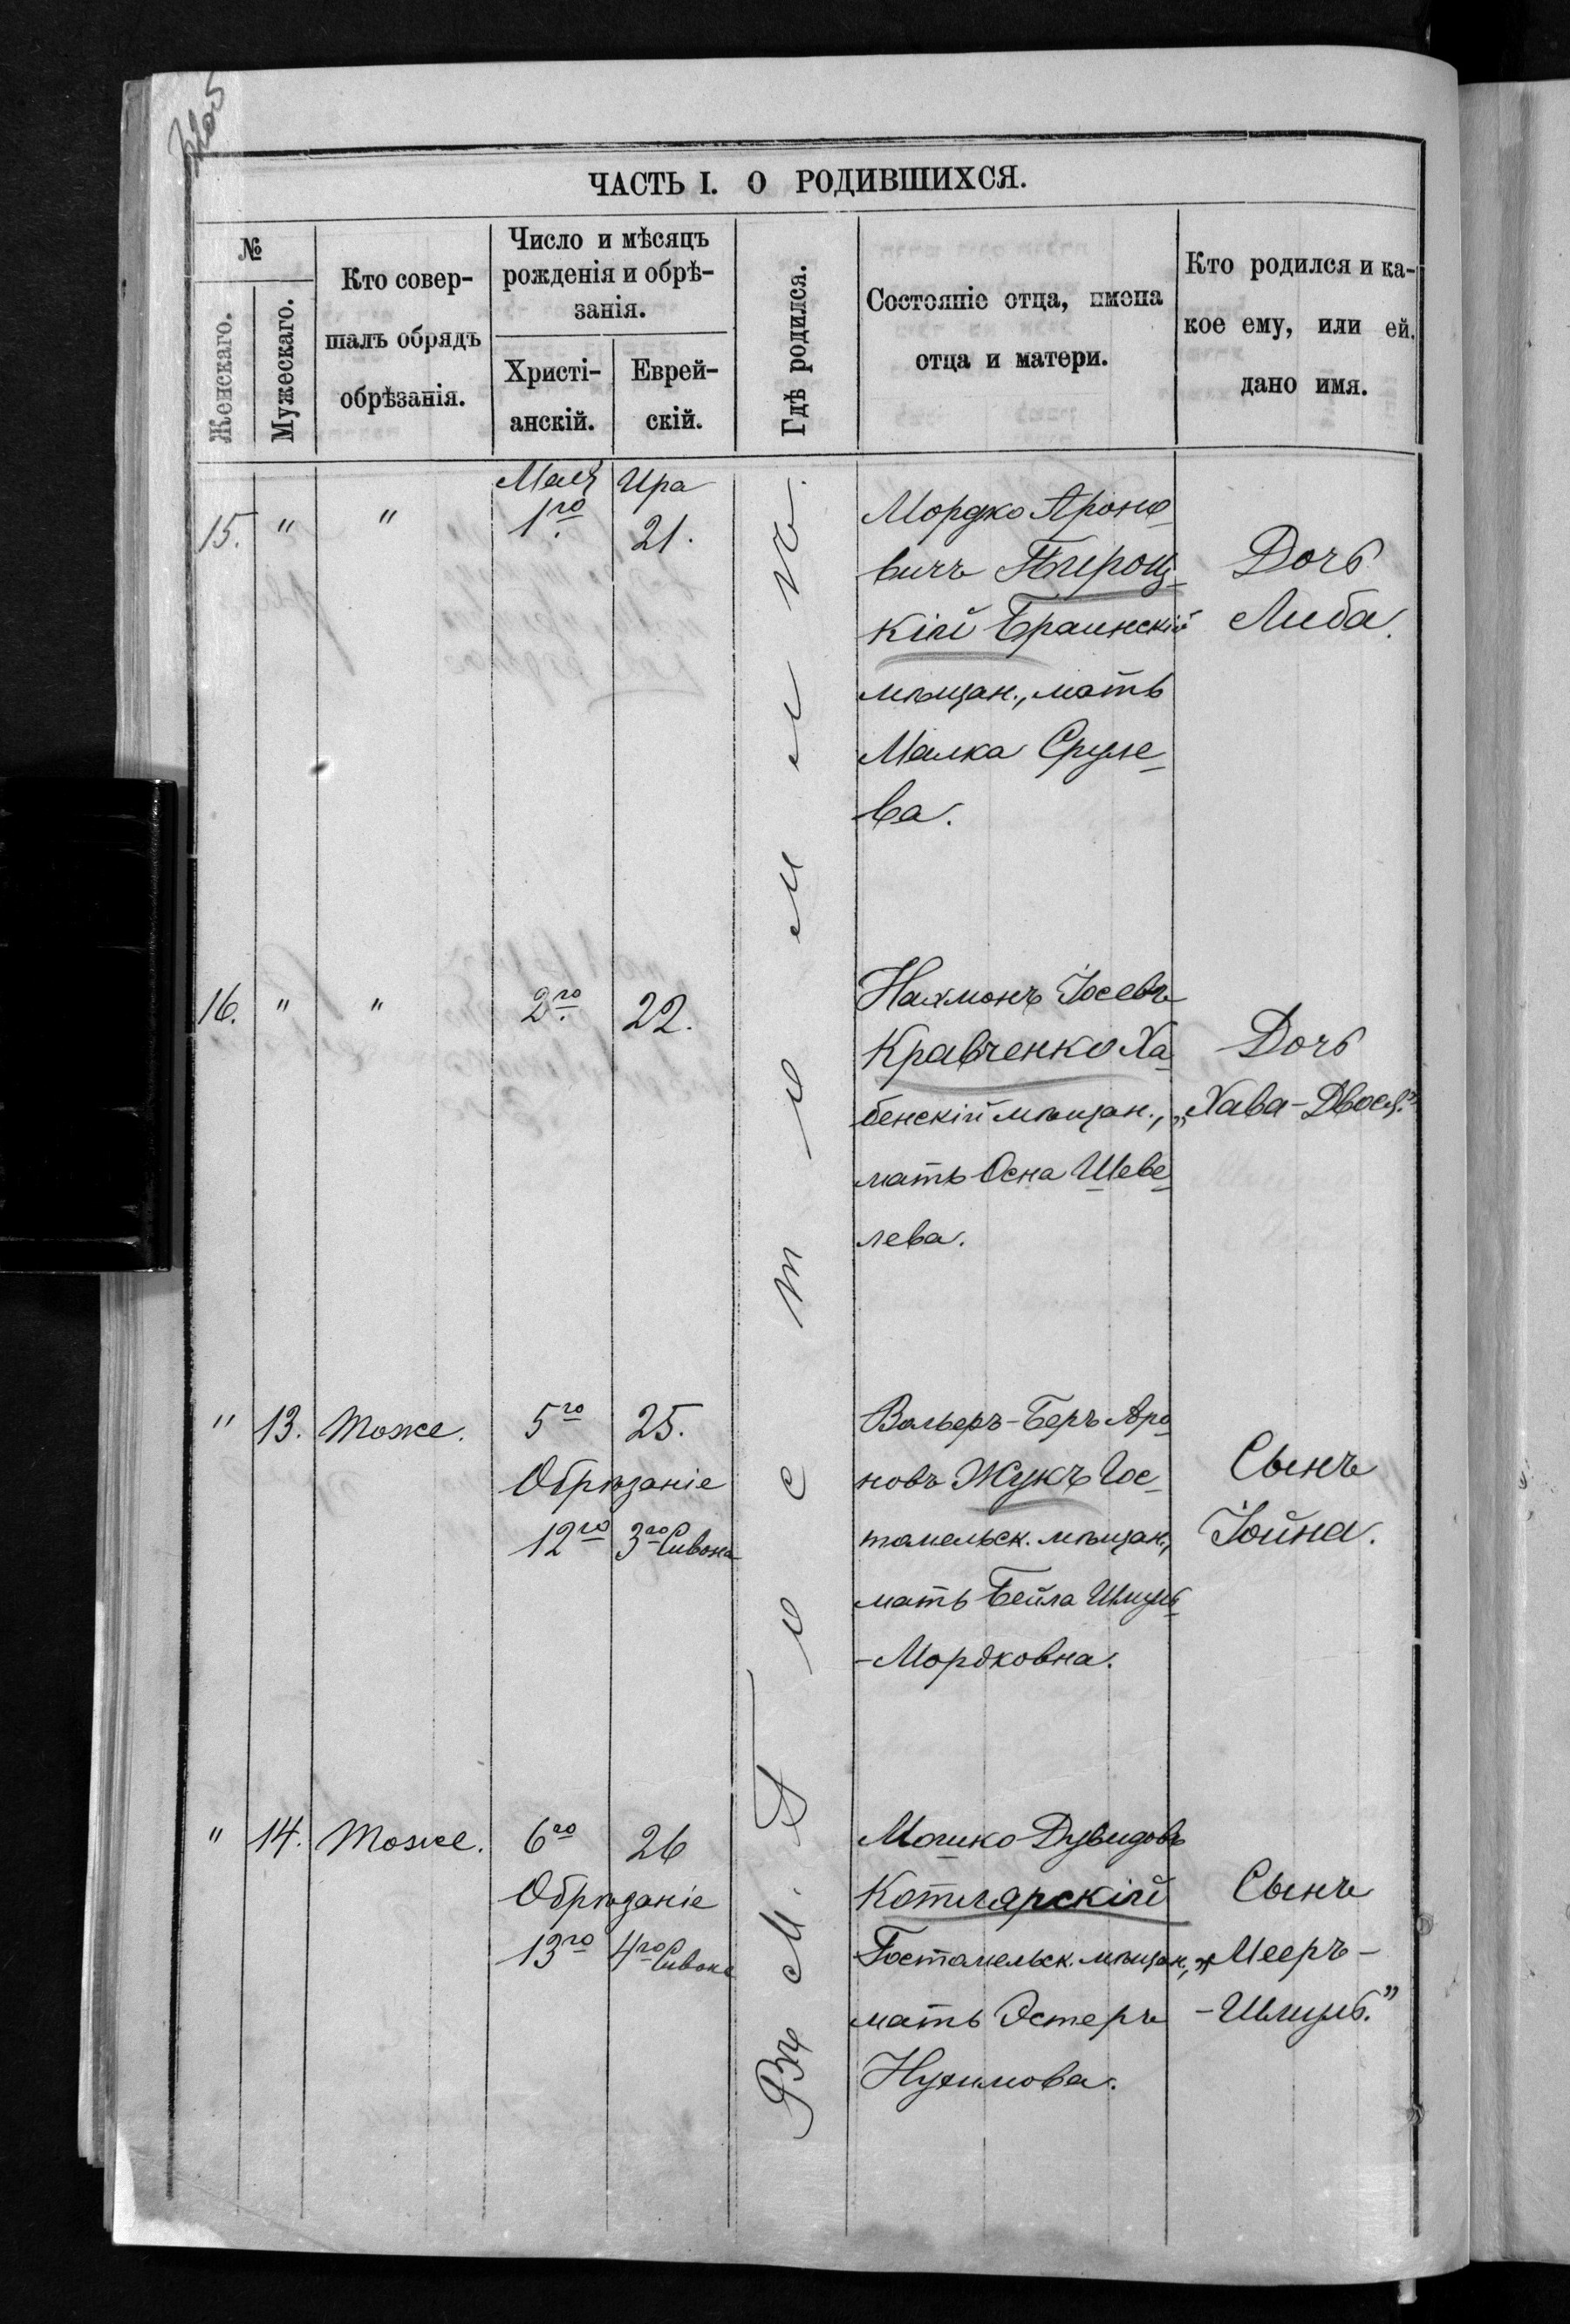 ЧАСТЬ I. О РОДИВШИХСЯ.
№
Женскаго.
Мужескаго.
Кто совер-
шалъ обрядъ
обрѣзанія.
Число и мѣсяцъ
рожденія и обрѣ-
занія.
Христі-
анскій.
Еврей-
скій.
Гдѣ родился.
Состояніе отца, имена
отца и матери.
Кто родился и ка-
кое ему, или ей
дано имя.
Въ М. Гостомелѣ.
15. " " Мая 1го Ира 21.
Мордко Ароно-
вичъ Пироц-
кій Браинскій
мѣщан., мать
Малка Сруле-
ва.
Дочь
Либа.
16. " " 2го 22.
Нахманъ Іосевъ
Кравченко Ха-
бенскій мѣщан.,
мать Осна Шеве-
лева.
Дочь
„Хава-Двося."
" 13. Тоже. 5го 25.
Обрѣзаніе
12го 3го Сивона
Вольеръ-Беръ Аро-
новъ Жукъ Гос-
томельск. мѣщан.,
мать Бейла Шмуль-
-Мордковна.
Сынъ
Іойна.
" 14. Тоже. 6го 26
Обрѣзаніе
13го 4го Сивона
Мошко Дувидовъ
Котлярскій
Гостомельск. мѣщан.,
мать Эстеръ
Нухимова.
Сынъ
„Мееръ-
-Шмуль."